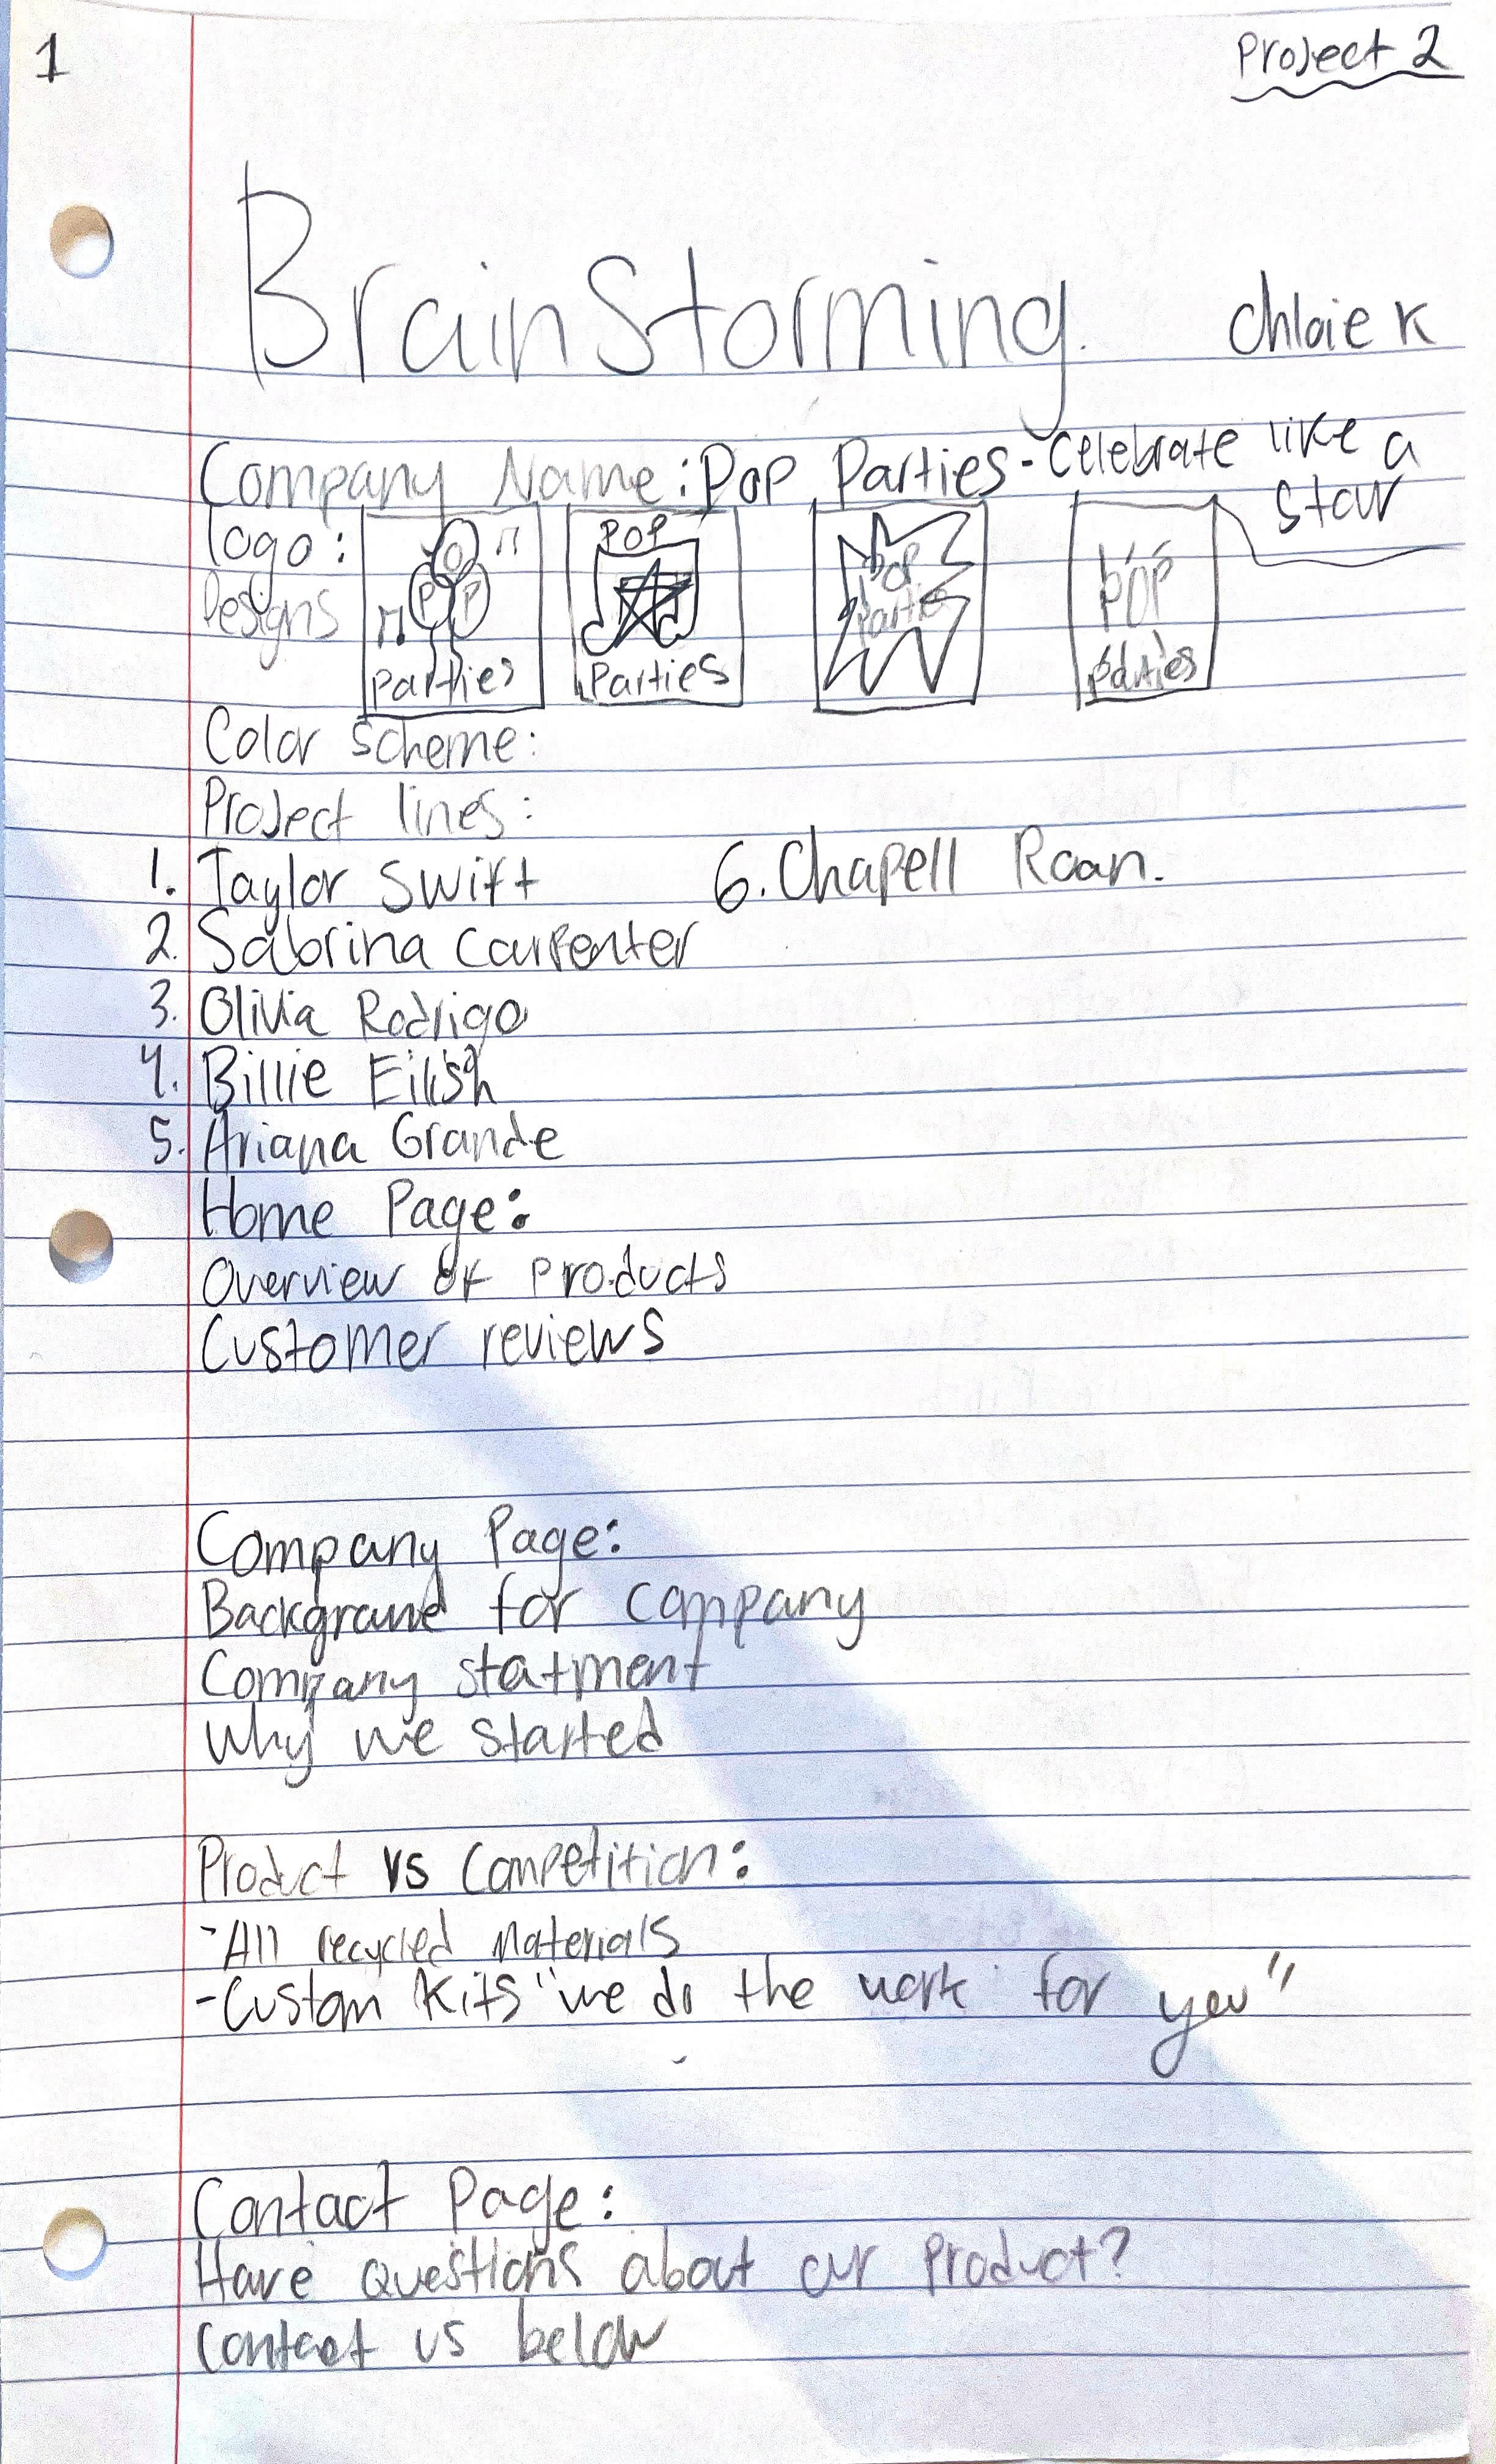 1
Project 2
BrainStorming.
Chloie K
Company Name: Pop Parties - Celebrate like a
Star
logo:
Designs
POP
Parties
POP
Parties
Pop
Parties
POP
parties
Color Scheme:
Project lines:
1. Taylor Swift
6. Chapell Roan.
2. Sabrina Carpenter
3. Olivia Rodrigo
4. Billie Eilish
5. Ariana Grande
Home Page:
Overview of products
Customer reviews
Company Page:
Background for company
Company statment
Why we started
Product vs Competition:
-All recycled materials
-Custom Kits "we do the work for you"
Contact Page:
Have questions about our product?
Contact us below